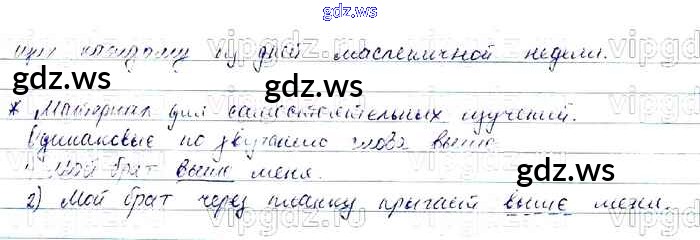 gdz.ws
каждому из дней масленичной недели.
gdz.ws
gdz.ws
* Материал для самостоятельных изучений.
Одинаковые по звучанию слова выше
1) Мой брат выше меня.
gdz.ws
2) Мой брат через планку прыгает выше меня.